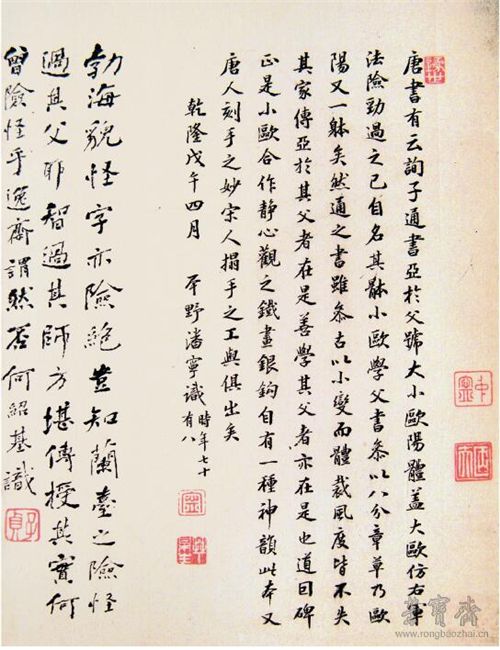 唐書有云詢子通書亞於父號大小歐陽體蓋大歐仿右軍
法險勁過之已自名其體小歐學父書叅以八分章草乃歐
陽又一躰矣然通之書雖叅古以小變而體裁風度皆不失
其家傳亞於其父者在是善學其父者亦在是也道因碑
正是小歐合作静心觀之鐵畫銀鉤自有一種神韻此本又
唐人刻手之妙宋人搨手之工與俱出矣
乾隆戊午四月 平野潘寧識 時年七十有八
勃海貌怪字亦險絶豈知蘭臺之險怪
過其父耶智過其師方堪傳授其實何
曾險怪乎逸齋謂然否何紹基識
子貞
榮寶齋
www.rongbaozhai.cn